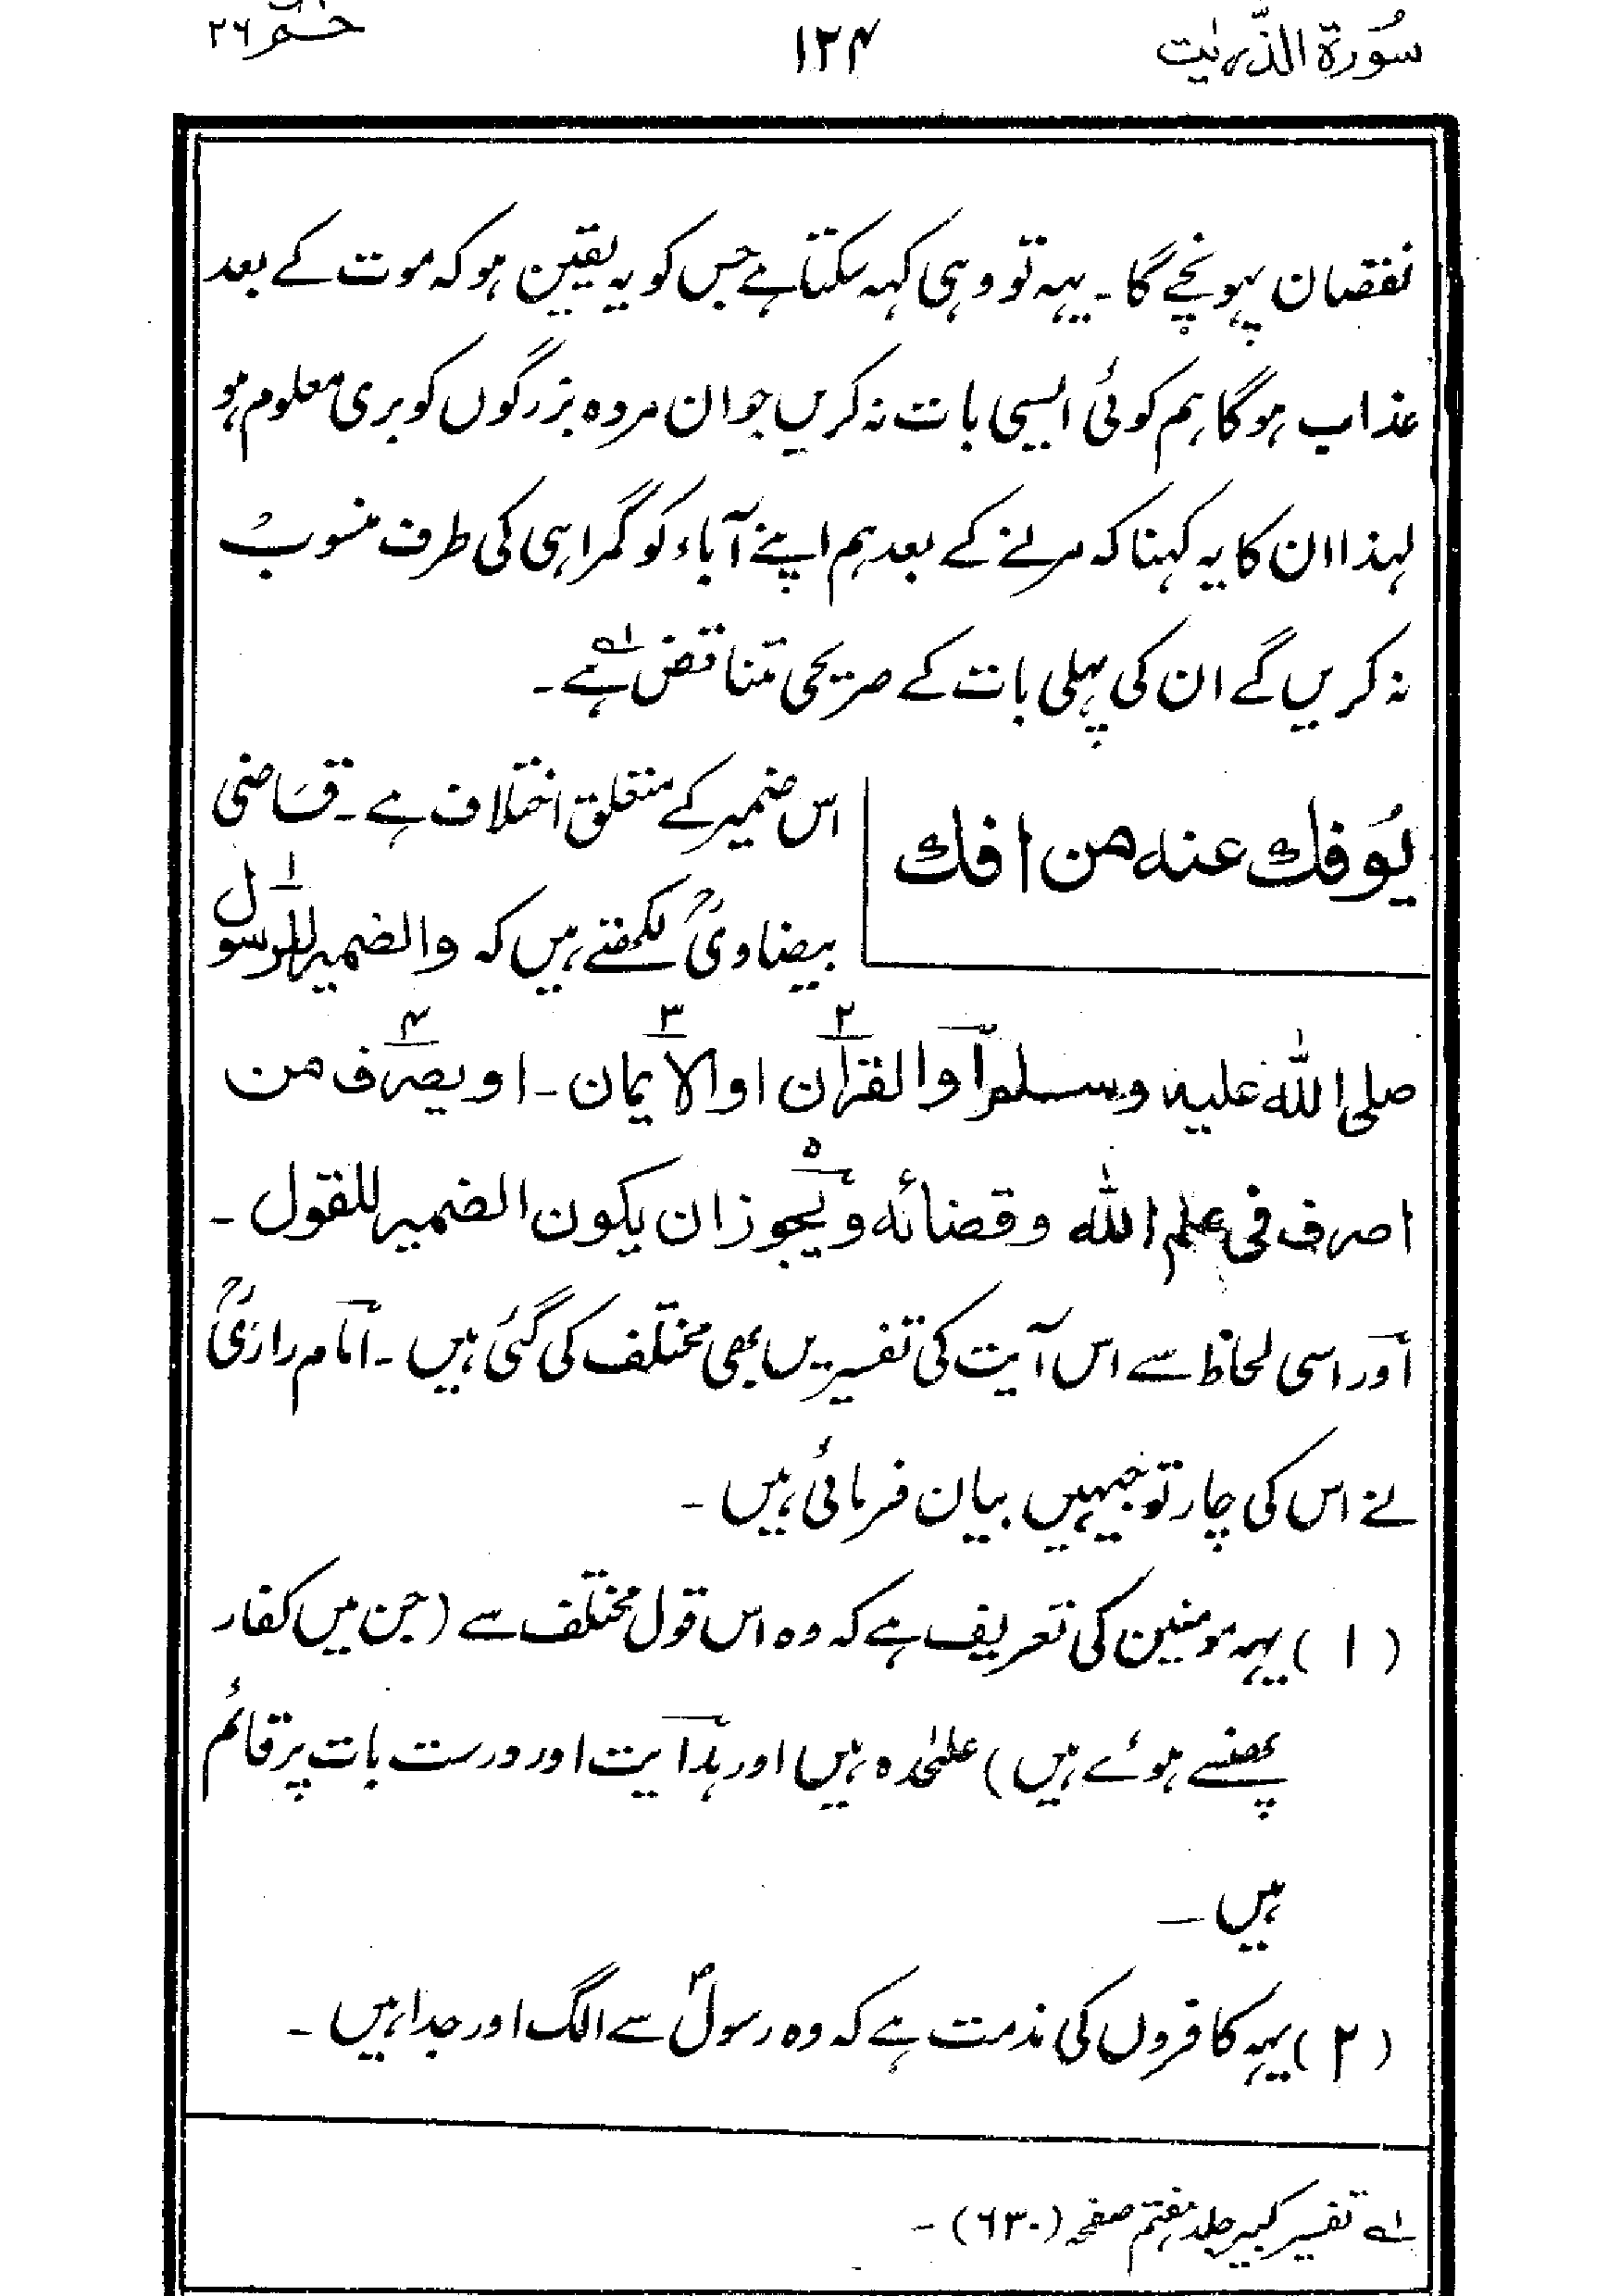 سُورة الذّٰریٰت ۱۲۴ حٰمٓ ۲۶
نفقصان پہونچے گا ۔ یہہ تو وہی کہہ سکتا ہے جس کو یہ یقین ہو کہ موت کے بعد
عذاب ہوگا ہم کوئی ایسی بات نہ کریں جو ان مردہ بزرگوں کو بری معلوم ہو
لہذا ان کا یہ کہنا کہ مرنے کے بعد ہم اپنے آباء کو گمراہی کی طرف منسوب
نہ کریں گے ان کی پہلی بات کے صریحی تناقض ہے ؂۱ ۔
یُوفك عنه من افك
اس ضمیر کے متعلق اختلاف ہے ۔ قاضی
بیضاویؒ لکھتے ہیں کہ والضمیر للرسول ۱
صلی اللہ علیه وسلم او القرآن ۲ او الایمان ۳ ۔ او یصرف ۴ من
اصرف فی علم اللہ وقضائه ویجوز ۵ ان یکون الضمیر للقول ۔
اور اسی لحاظ سے اس آیت کی تفسیریں بھی مختلف کی گئی ہیں ۔ امام رازیؒ
نے اس کی چار توجیہیں بیان فرمائی ہیں ۔
(۱) یہہ مومنین کی تعریف ہے کہ وہ اس قول مختلف سے (جن میں کفار
پھنسے ہوئے ہیں) علیٰحدہ ہیں اور ہدایت اور درست بات پر قائم
ہیں ۔
(۲) یہہ کافروں کی مذمت ہے کہ وہ رسولؐ سے الگ اور جدا ہیں ۔
؂۱ تفسیر کبیر جلد ہفتم صفحہ (۶۳۰) ۔